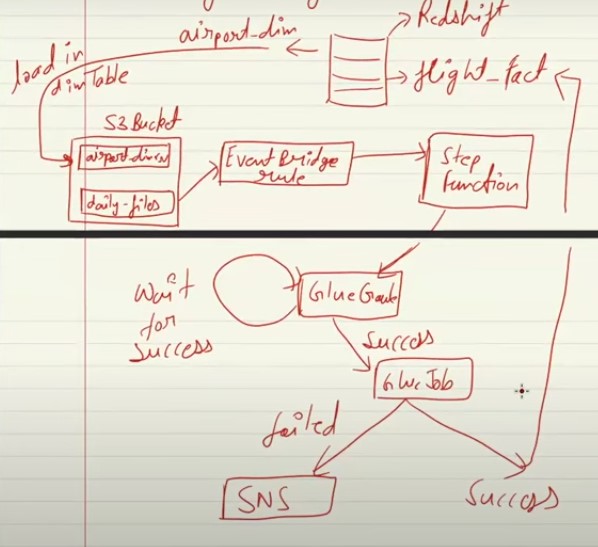 Redshift
airport-dim
flight-fact
load in
dim Table
S3 Bucket
airport-dim
daily-files
Event Bridge
rule
Step
Function
Wait
for
Success
Glue Crawl
Success
Glue Job
failed
SNS
Success